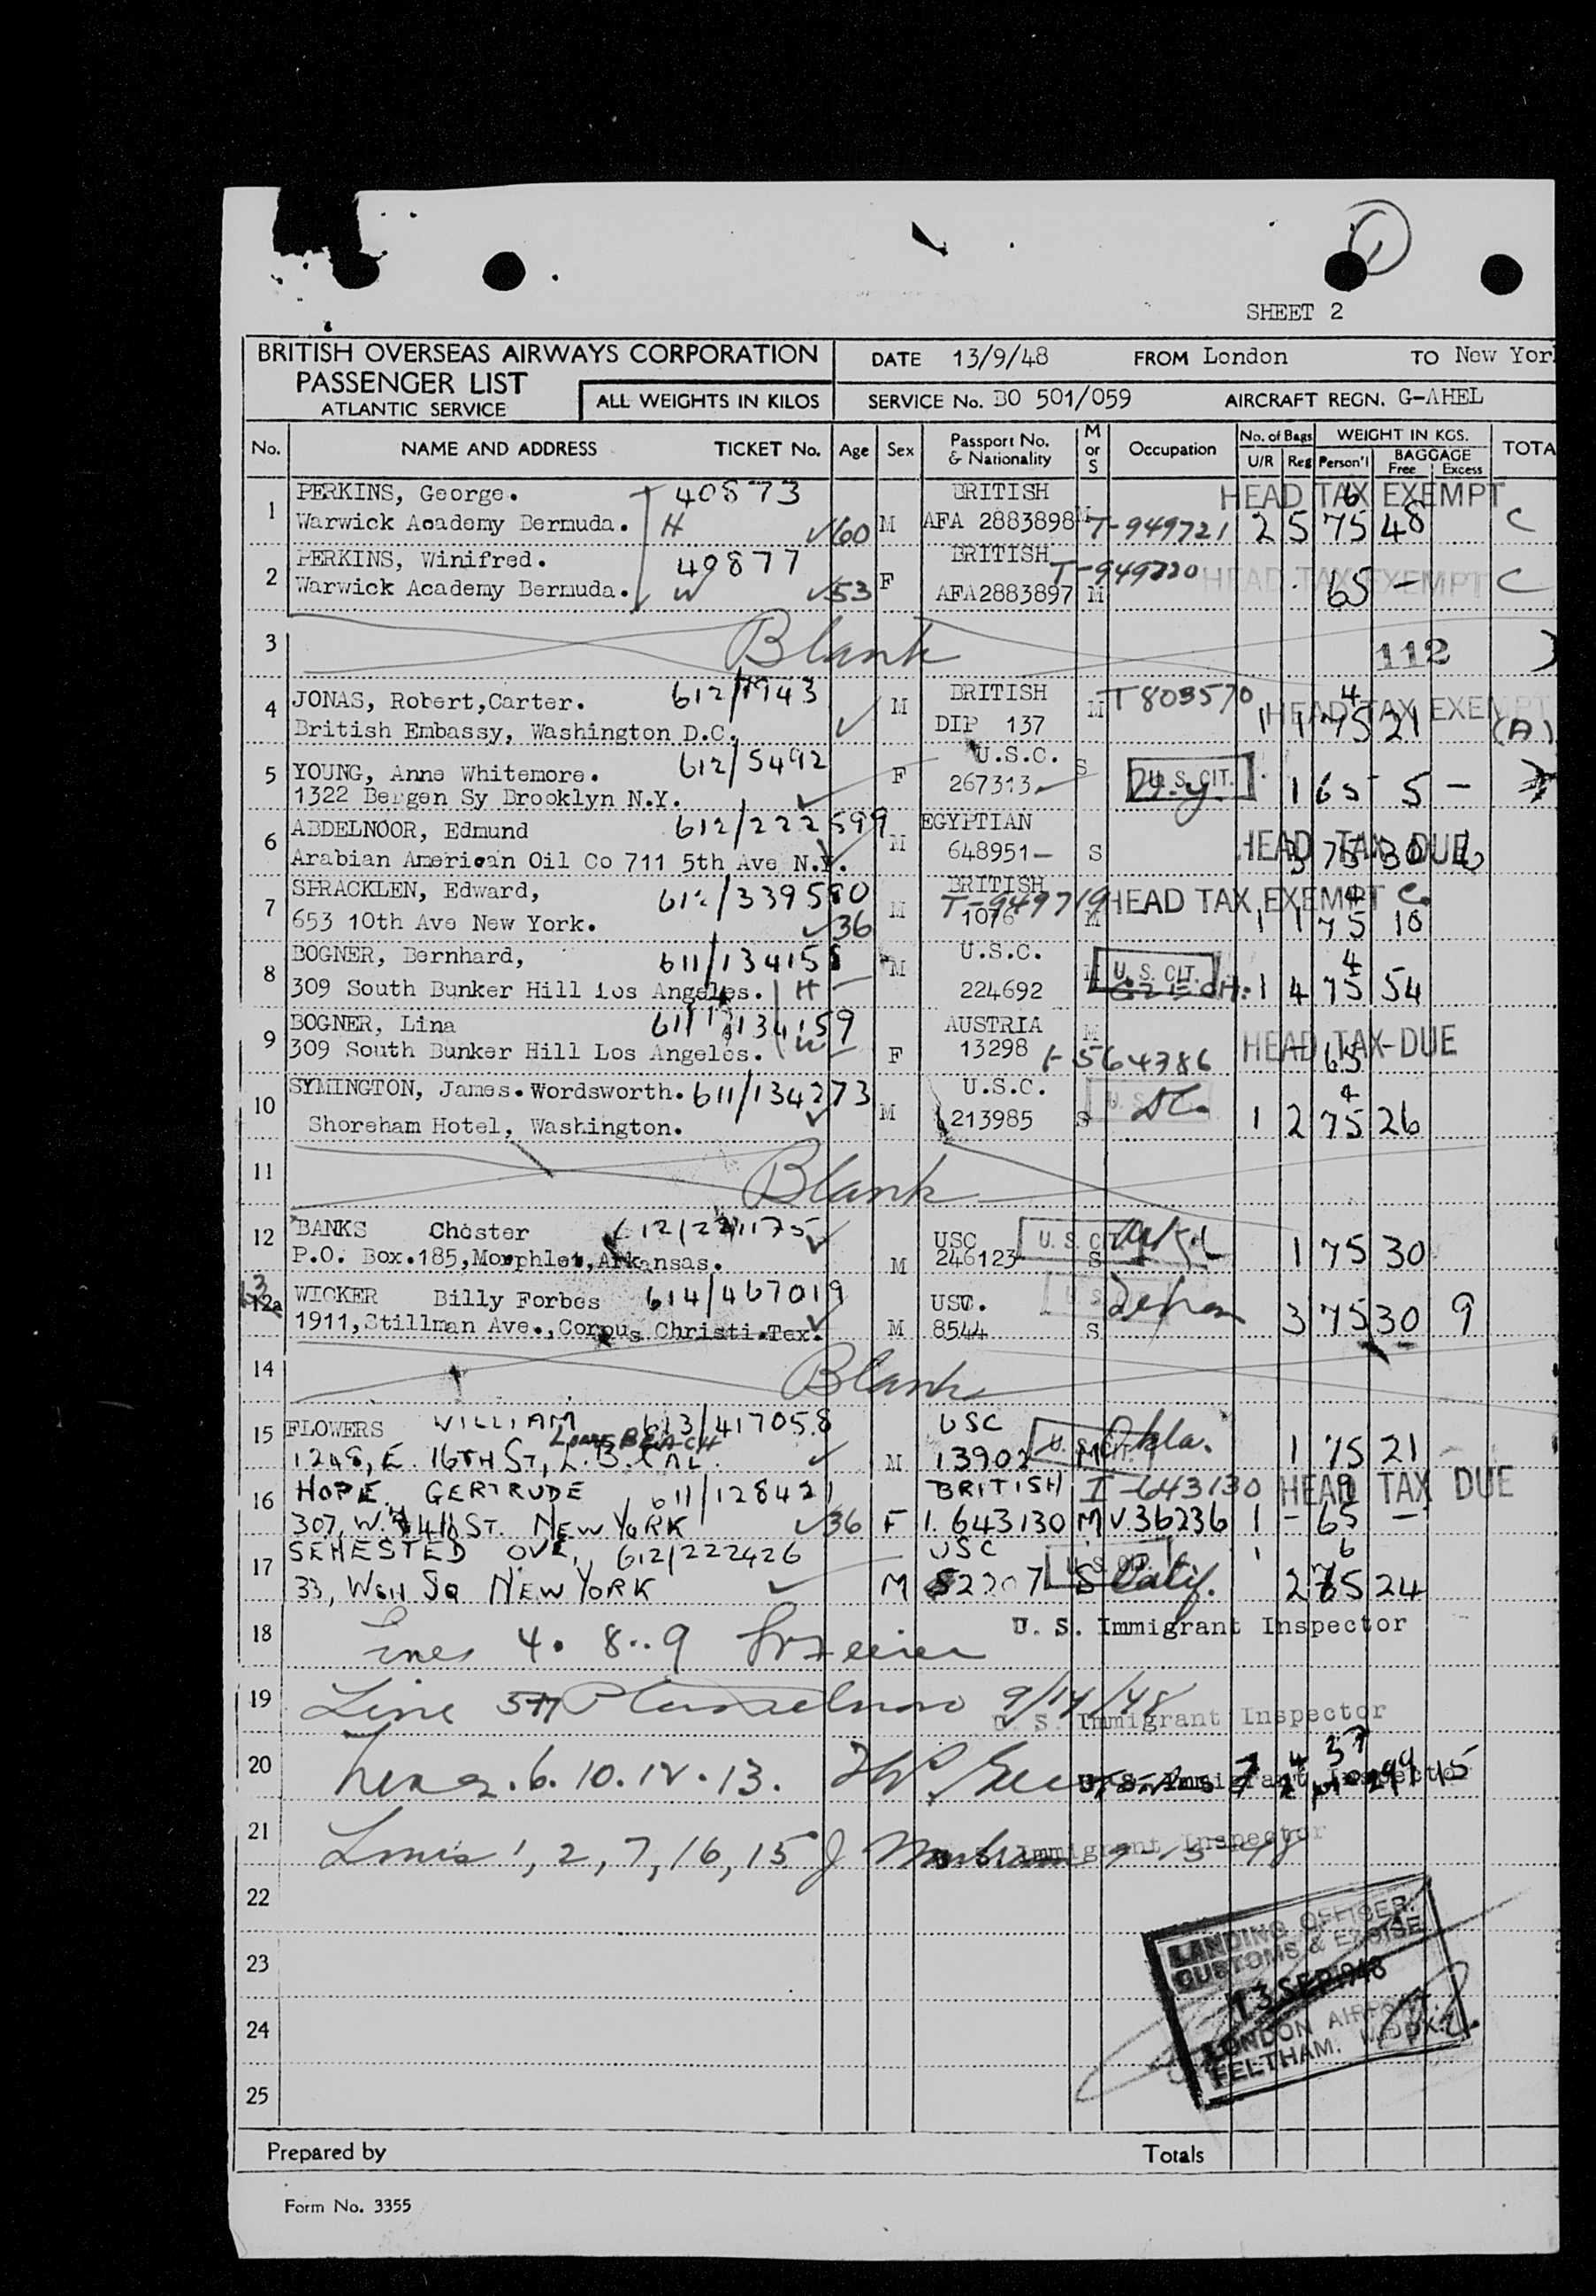 SHEET 2
BRITISH OVERSEAS AIRWAYS CORPORATION
PASSENGER LIST
ATLANTIC SERVICE
ALL WEIGHTS IN KILOS
DATE 13/9/48 FROM London TO New Yor
SERVICE No. BO 501/059 AIRCRAFT REGN. G-AHEL
No. NAME AND ADDRESS TICKET No. Age Sex Passport No. & Nationality M or S Occupation No. of Bags U/R Reg WEIGHT IN KGS. Person'l BAGGAGE Free Excess TOTA
1 PERKINS, George. 40873 BRITISH HEAD TAX EXEMPT
Warwick Academy Bermuda. H 60 M AFA 2883898 M T-949721 2 5 75 48 C
2 PERKINS, Winifred. 40877 BRITISH T-949720 HEAD TAX EXEMPT
Warwick Academy Bermuda. W 53 F AFA2883897 M 65 - C
3 Blank 112
4 JONAS, Robert,Carter. 612/7943 M BRITISH M T803570 HEAD TAX EXEMPT
British Embassy, Washington D.C. DIP 137 1 1 75 21 (A)
5 YOUNG, Anne Whitemore. 612/5492 F U.S.C. S U. S. CIT.
1322 Bergen Sy Brooklyn N.Y. 267313 N.Y. 1 65 5 -
6 ABDELNOOR, Edmund 612/222599 M EGYPTIAN HEAD TAX DUE
Arabian American Oil Co 711 5th Ave N.Y. 648951 S 3 75 30
7 SPRACKLEN, Edward, 612/339580 M BRITISH T-949719 HEAD TAX EXEMPT C
653 10th Ave New York. 36 1076 M 1 1 75 10
8 BOGNER, Bernhard, 611/134158 M U.S.C. M U. S. CIT.
309 South Bunker Hill Los Angeles. H 224692 1 4 75 54
9 BOGNER, Lina 611/134159 AUSTRIA M HEAD TAX DUE
309 South Bunker Hill Los Angeles. W F 13298 I-564386 65
10 SYMINGTON, James. Wordsworth. 611/134273 M U.S.C. U. S. D.C.
Shoreham Hotel, Washington. 213985 S 1 2 75 26
11 Blank
12 BANKS Chester USC U. S. CIT
P.O. Box.185,Morphlet,Arkansas. M 246123 S 1 75 30
13 12a WICKER Billy Forbes 614/467019 USC. U S
1911,Stillman Ave.,Corpus Christi.Tex. M 8544 S 3 75 30 9
14 Blank
15 FLOWERS WILLIAM 613/417058 USC U. S. CIT. Okla.
LONG BEACH
1248, E. 16TH ST, L.B. CAL. M 13902 M 1 75 21
16 HOPE. GERTRUDE 611/128421 BRITISH I-643130 HEAD TAX DUE
307, W. 4TH ST. NEW YORK 36 F I. 643130 M V36236 1 - 65 -
17 SEHESTED OVE, 612/222426 USC U. S. CIT.
33, WSH SQ NEW YORK M 52207 S Calif. 2 75 24
18 Lines 4. 8..9 U. S. Immigrant Inspector
19 Line 9/14/48 U. S. Immigrant Inspector
20 Lines. 6. 10. 12. 13. U. S. Immigrant Inspector
21 Lines 1, 2, 7, 16, 15 U. S. Immigrant Inspector
22
23
24
25
LANDING OFFICER.
CUSTOMS & EXCISE
13 SEP 1948
LONDON AIRPORT.
FELTHAM. MDDX.
Prepared by Totals
Form No. 3355